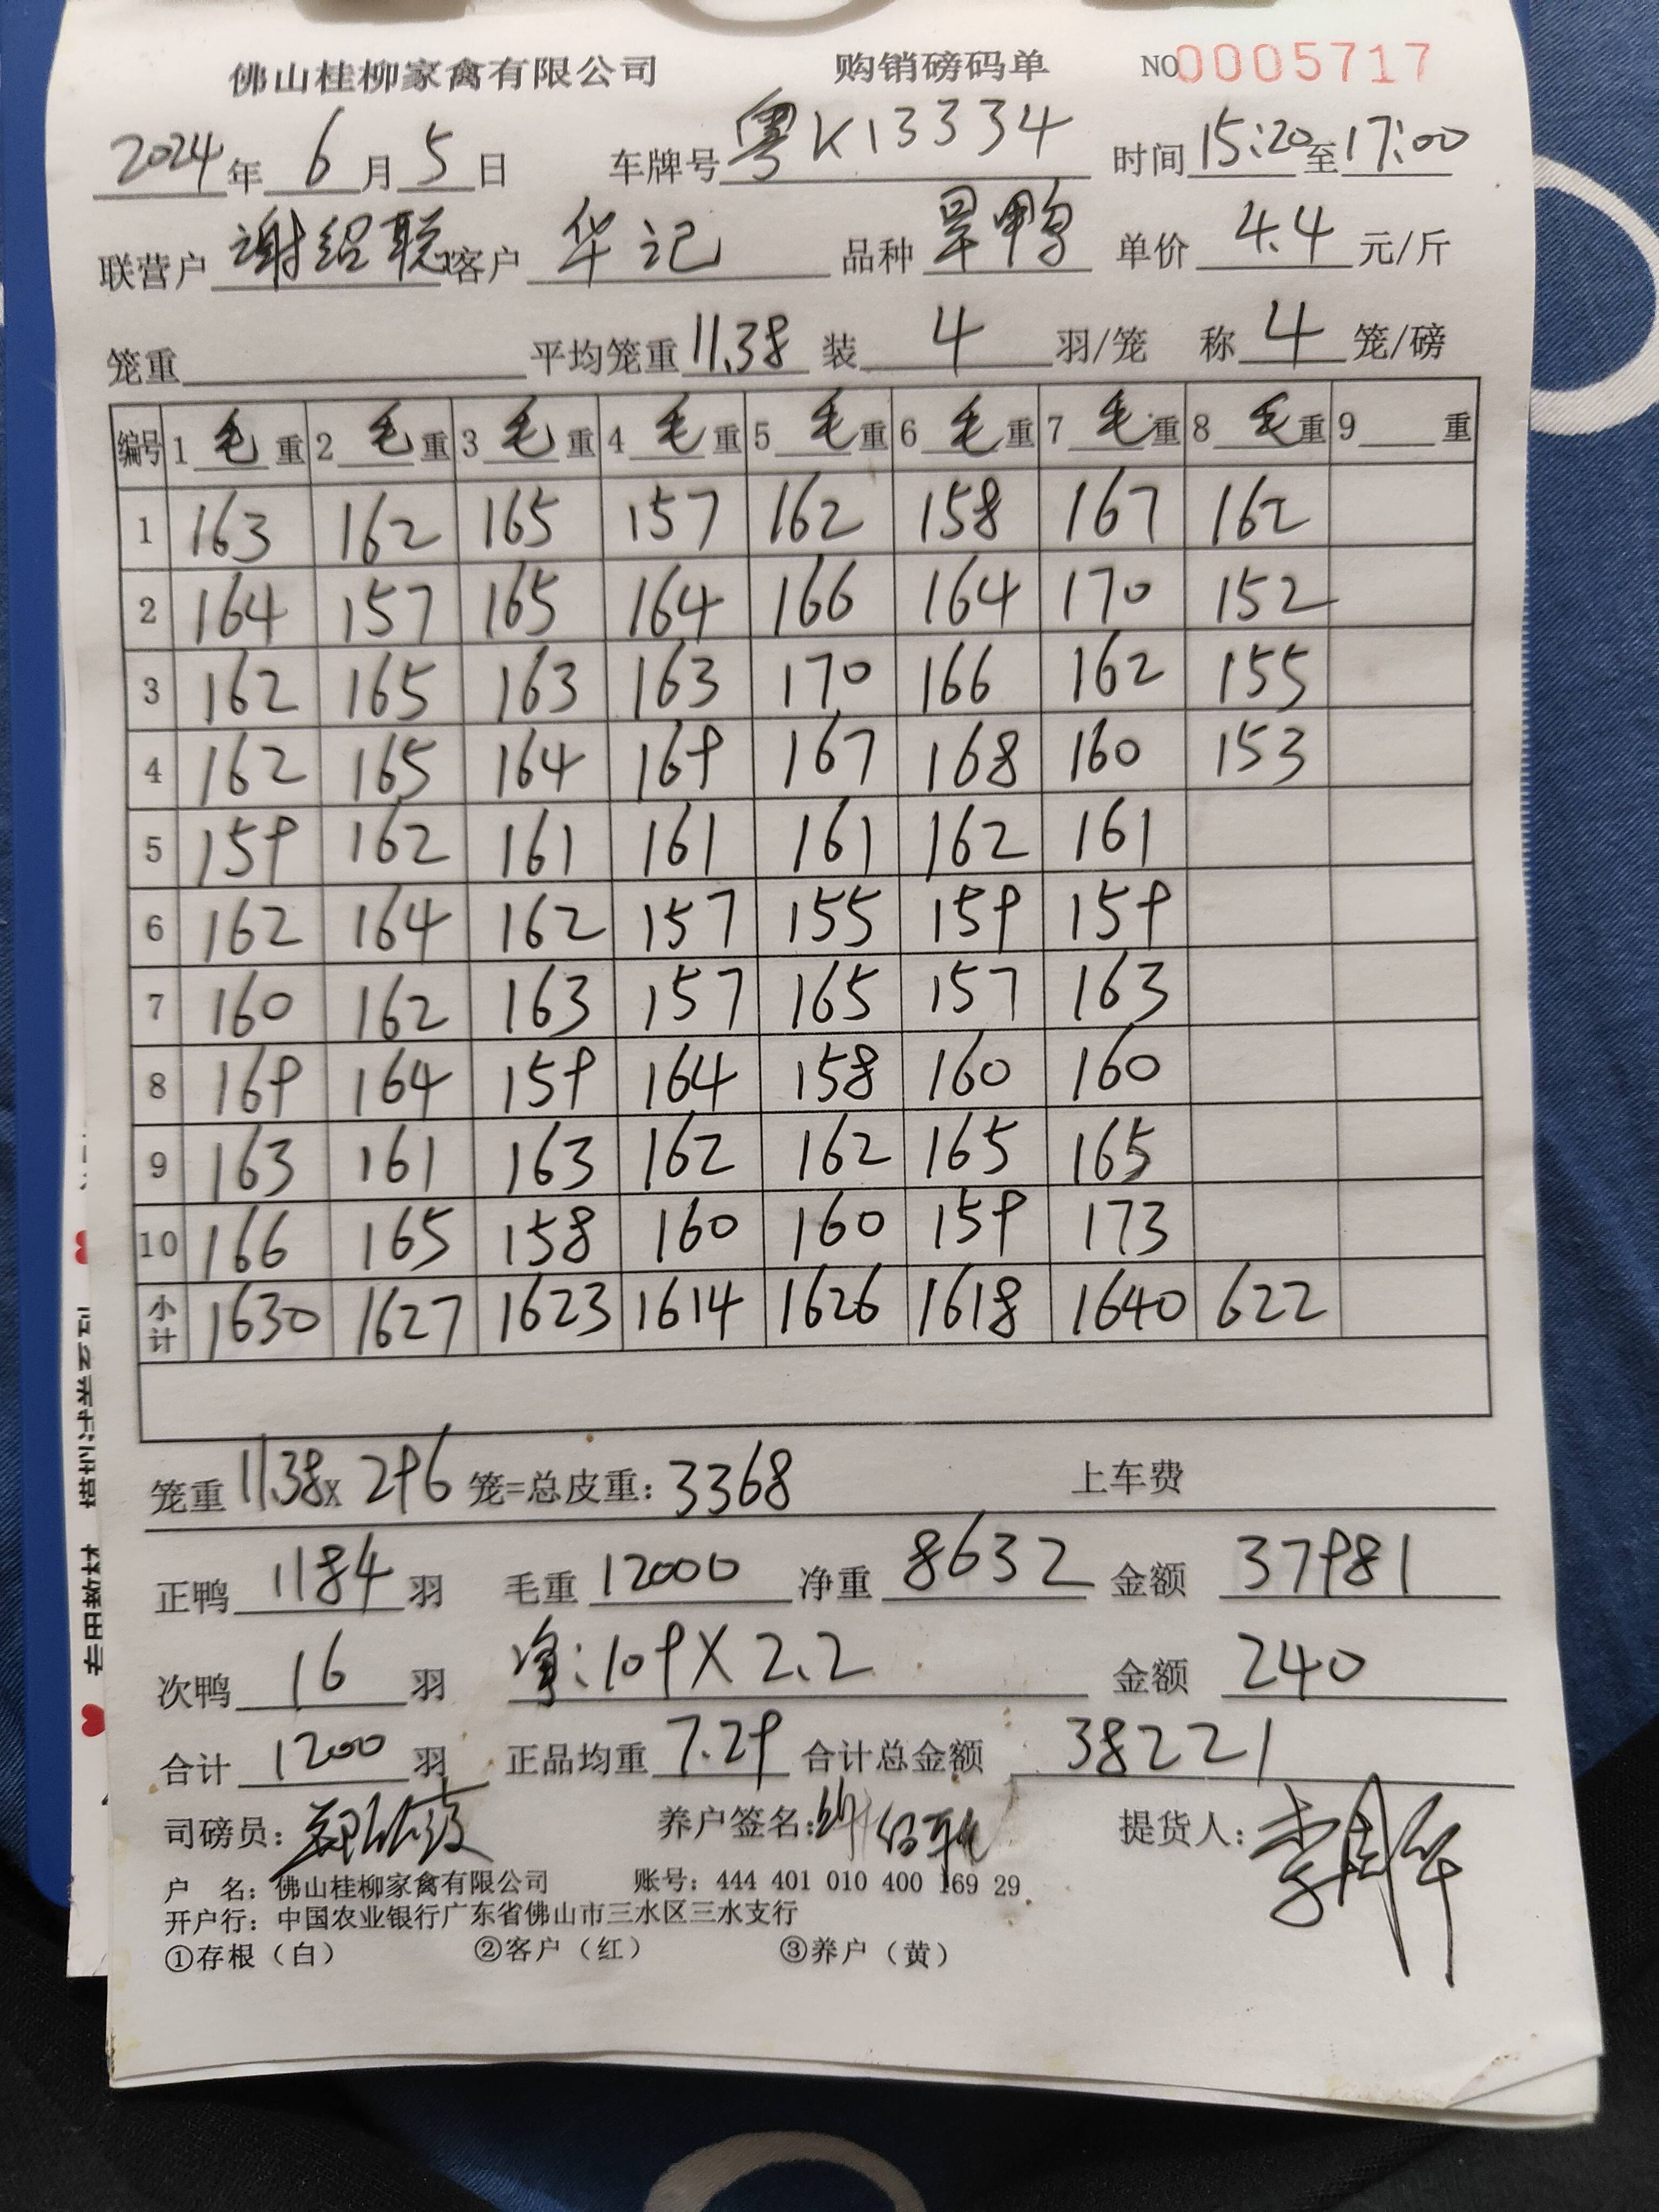 佛山桂柳家禽有限公司 购销磅码单 NO0005717
2024年6月5日 车牌号粤K13334 时间15:20至17:00
联营户谢绍聪 客户华记 品种旱鸭 单价4.4元/斤
笼重 平均笼重11.38 装4羽/笼 称4笼/磅
编号 1毛重 2毛重 3毛重 4毛重 5毛重 6毛重 7毛重 8毛重 9重
1 163 162 165 157 162 158 167 162
2 164 157 165 164 166 164 170 152
3 162 165 163 163 170 166 162 155
4 162 165 164 169 167 168 160 153
5 159 162 161 161 161 162 161
6 162 164 162 157 155 159 159
7 160 162 163 157 165 157 163
8 169 164 159 164 158 160 160
9 163 161 163 162 162 165 165
10 166 165 158 160 160 159 173
小计 1630 1627 1623 1614 1626 1618 1640 622
笼重11.38x296笼=总皮重:3368 上车费
正鸭1184羽 毛重12000 净重8632 金额37981
次鸭16羽 净:109X2.2 金额240
合计1200羽 正品均重7.29 合计总金额38221
司磅员: 养户签名: 提货人:
户 名:佛山桂柳家禽有限公司 账号:444 401 010 400 169 29
开户行:中国农业银行广东省佛山市三水区三水支行
①存根(白) ②客户(红) ③养户(黄)